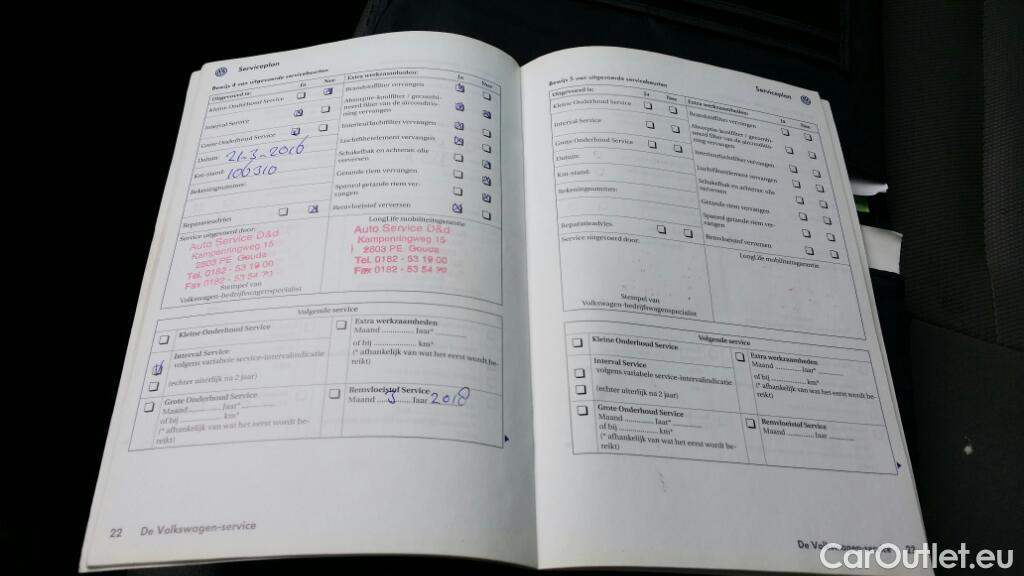 Serviceplan
Bewijs 4 van uitgevoerde servicebeurten
Uitgevoerd is: Ja Nee
Kleine Onderhoud Service
Interval Service
Grote Onderhoud Service
Datum: 21-3-2016
Km-stand: 106310
Rekeningnummer:
Reparatieadvies
Extra werkzaamheden: Ja Nee
Brandstoffilter vervangen
Absorptie-koolfilter / gecombi-
neerd filter van de airconditio-
ning vervangen
Interieurluchtfilter vervangen
Luchtfilterelement vervangen
Schakelbak en achteras: olie
verversen
Getande riem vervangen
Spanrol getande riem ver-
vangen
Remvloeistof verversen
Service uitgevoerd door:
Auto Service D&d
Kampenringweg 15
2803 PE Gouda
Tel. 0182 - 53 19 00
Fax 0182 - 53 54 70
Stempel van
Volkswagen-bedrijfswagenspecialist
LongLife mobiliteitsgarantie
Auto Service D&d
Kampenringweg 15
2803 PE Gouda
Tel. 0182 - 53 19 00
Fax 0182 - 53 54 70
Volgende service
Kleine Onderhoud Service
Interval Service
volgens variabele service-intervalindicatie
(echter uiterlijk na 2 jaar)
Grote Onderhoud Service
Maand ............ Jaar* ............
of bij ............ km*
(* afhankelijk van wat het eerst wordt be-
reikt)
Extra werkzaamheden
Maand ............ Jaar* ............
of bij ............ km*
(* afhankelijk van wat het eerst wordt be-
reikt)
Remvloeistof Service
Maand 3 Jaar 2018
22 De Volkswagen-service
Bewijs 5 van uitgevoerde servicebeurten
Serviceplan
Uitgevoerd is: Ja Nee
Kleine Onderhoud Service
Interval Service
Grote Onderhoud Service
Datum:
Km-stand:
Rekeningnummer:
Reparatieadvies
Extra werkzaamheden: Ja Nee
Brandstoffilter vervangen
Absorptie-koolfilter / gecombi-
neerd filter van de airconditio-
ning vervangen
Interieurluchtfilter vervangen
Luchtfilterelement vervangen
Schakelbak en achteras: olie
verversen
Getande riem vervangen
Spanrol getande riem ver-
vangen
Remvloeistof verversen
Service uitgevoerd door:
Stempel van
Volkswagen-bedrijfswagenspecialist
LongLife mobiliteitsgarantie
Volgende service
Kleine Onderhoud Service
Interval Service
volgens variabele service-intervalindicatie
(echter uiterlijk na 2 jaar)
Grote Onderhoud Service
Maand ............ Jaar* ............
of bij ............ km*
(* afhankelijk van wat het eerst wordt be-
reikt)
Extra werkzaamheden
Maand ............ Jaar* ............
of bij ............ km*
(* afhankelijk van wat het eerst wordt be-
reikt)
Remvloeistof Service
Maand ............ Jaar ............
De Volkswagen-service
CarOutlet.eu